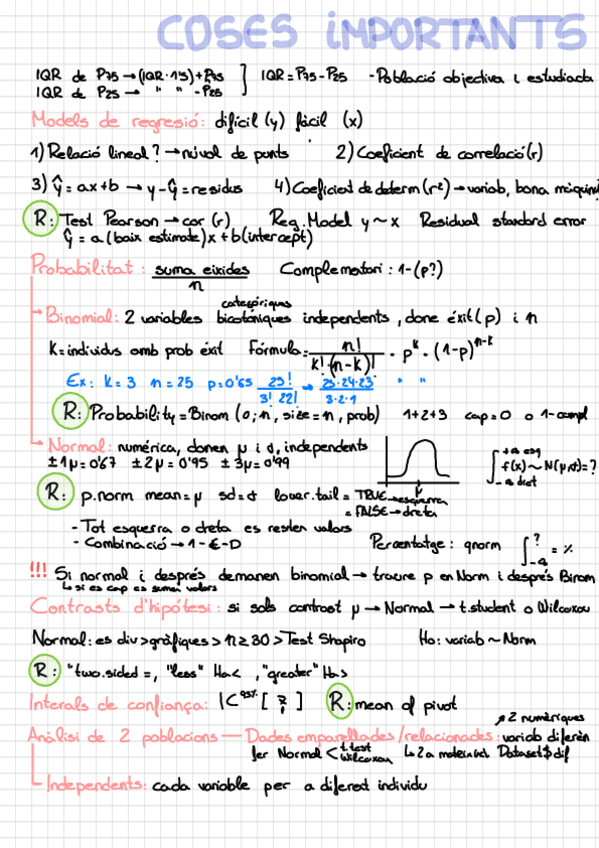 COSES IMPORTANTS
IQR de P75 → (IQR · 1'5) + P75 ] IQR = P75 - P25 - Població objectiva i estudiada
IQR de P25 → " " - P25
Models de regresió: difícil (y) fàcil (x)
1) Relació lineal? → núvol de punts 2) Coeficient de correlació (r)
3) ŷ = ax + b → y - ŷ = residus 4) Coeficient de determ (r²) → variab, bona màquina
R: Test Pearson → cor (r) Reg. Model y ~ x Residual standard error
ŷ = a (baix estimate) x + b (intercept)
Probabilitat: suma eixides / n Complementari: 1-(p?)
categòriques
Binomial: 2 variables independents, done éxit (p) i n
K = individus amb prob éxit Fórmula = n! / K! (n-k)! · p^k · (1-p)^n-k
Ex: k = 3 n = 25 p = 0'65 25! / 3! 22! → 25·24·23 / 3·2·1 " "
R: Probability = Binom (0; n, size = n, prob) 1+2+3 cap = 0 o 1-compl
Normal: numérica, donen μ i σ, independents
±1μ = 0'67 ±2μ = 0'95 ±3μ = 0'99
+a esq
∫ f(x) ~ N(μ,σ) = ?
-a dret
μ
R: p.norm mean = μ sd = σ lower.tail = TRUE → esquerra
= FALSE → dreta
- Tot esquerra o dreta es resten valors
- Combinació → 1 - E - D Percentatge: qnorm ∫ ? -a = %
!!! Si normal i després demanen binomial → traure p en Norm i després Binom
↳ si es cap es sumen valors
Contrasts d'hipótesi: si sols contrast μ → Normal → t.student o Wilcoxon
Normal: es div > gràfiques > n ≥ 30 > Test Shapiro Ho: variab ~ Norm
R: "two.sided =, "less" Ha<, "greater" Ha>
Intervals de confiança: IC 95% [ ; ] R: mean of pivot
↗ 2 numèriques
Anàlisi de 2 poblacions — Dades emparellades/relacionades: variab diferèn
fer Normal < t.test Wilcoxon ↳ 2a mateix ind. Dataset$dif
Independents: cada variable per a diferent individu